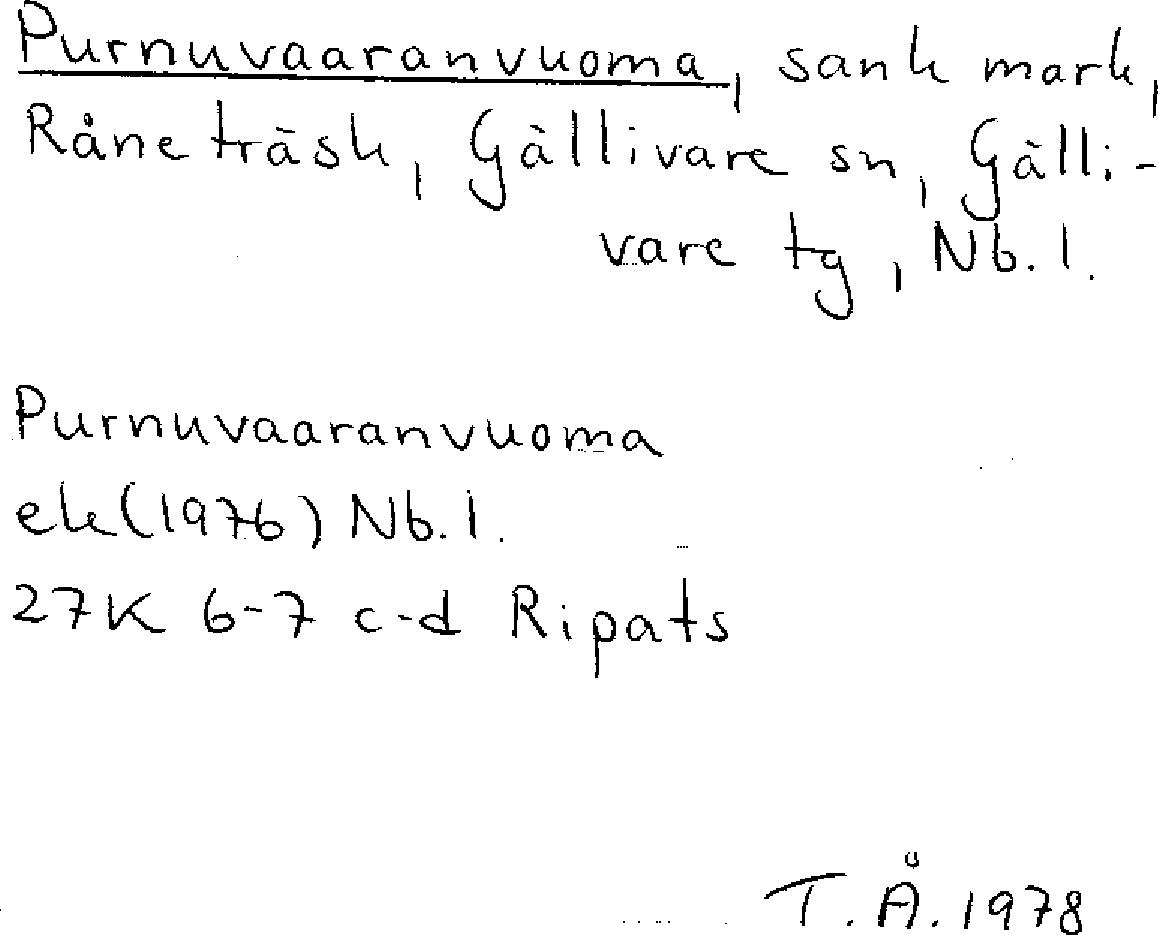 Purnuvaaranvuoma, sank mark,
Råneträsk, Gällivare sn, Gälli-
vare tg, Nb. l.
Purnuvaaranvuoma
ek (1976) Nb. l.
27K 6-7 c-d Ripats
T. Å. 1978